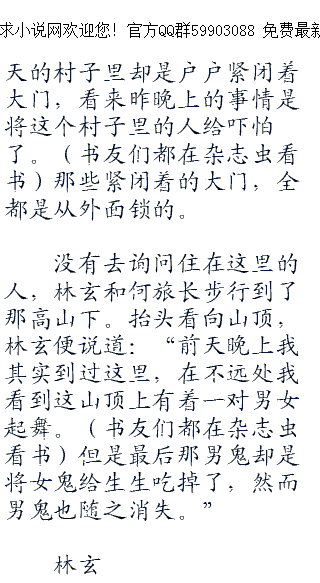 求小说网欢迎您！官方QQ群59903088 免费最新
天的村子里却是户户紧闭着
大门，看来昨晚上的事情是
将这个村子里的人给吓怕
了。（书友们都在杂志虫看
书）那些紧闭着的大门，全
都是从外面锁的。
没有去询问住在这里的
人，林玄和何旅长步行到了
那高山下。抬头看向山顶，
林玄便说道：“前天晚上我
其实到过这里，在不远处我
看到这山顶上有着一对男女
起舞。（书友们都在杂志虫
看书）但是最后那男鬼却是
将女鬼给生生吃掉了，然而
男鬼也随之消失。”
林玄